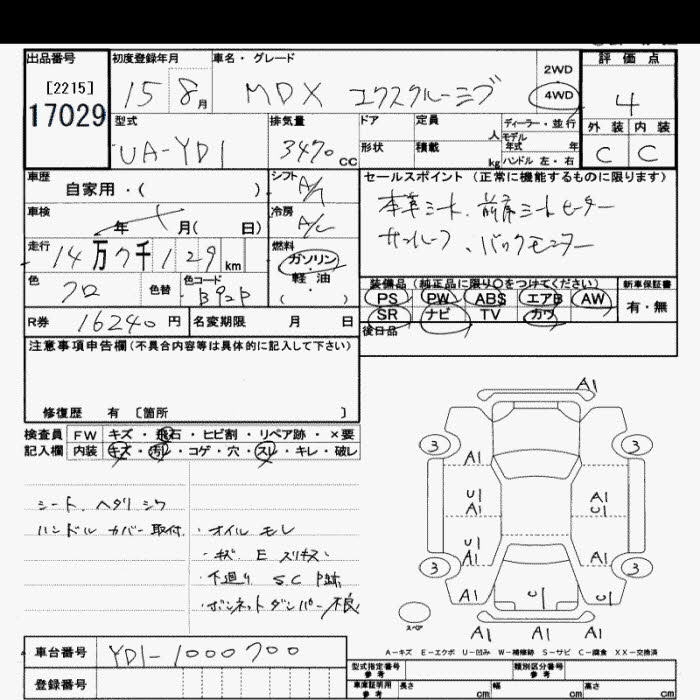 出品番号 初度登録年月 車名・グレード 評価点
[2215]
17029
15 8月 MDX エクスクルーシブ 2WD 4WD 4
型式 排気量 ドア 定員 人 ディーラー・並行 外装 内装
UA-YD1 3470 CC 形状 積載 kg モデル年式 年 ハンドル 左・右 C C
車歴 自家用・( ) シフト A/T
車検 年 月( 日) 冷房 A/C
走行 14万7千129km 燃料 ガソリン・軽油 ( )
色 クロ 色替 色コード B92P
R券 16240円 名変期限 月 日
セールスポイント(正常に機能するものに限ります)
本革シート、前席シートヒーター
サンルーフ、バックモニター
装備品(純正品に限り○をつけてください) 新車保証書
PS PW ABS エアB AW 有・無
SR ナビ TV カワ
後日品
注意事項申告欄(不具合内容等は具体的に記入して下さい)
修復歴 有 〔箇所 〕
検査員 FW キズ・飛石・ヒビ割・リペア跡・×要
記入欄 内装 キズ・汚レ・コゲ・穴・スレ・キレ・破レ
シート、ヘタリ シワ
ハンドル カバー 取付
・オイルモレ
・キズ E スリキズ
・下廻り S.C P跡
・ボンネットダンパー不良
A1
3 3
A1
U1 A1
U1 U1
A1 A1
3 3
A1 U1 A1
スペア
A1 A1 A1
A-キズ E-エクボ U-凹み W-補修跡 S-サビ C-腐食 XX-交換済
車台番号 YD1-1000700
登録番号
型式指定番号 参考 類別区分番号 参考
車庫証明用 参考 長さ cm 幅 cm 高さ cm